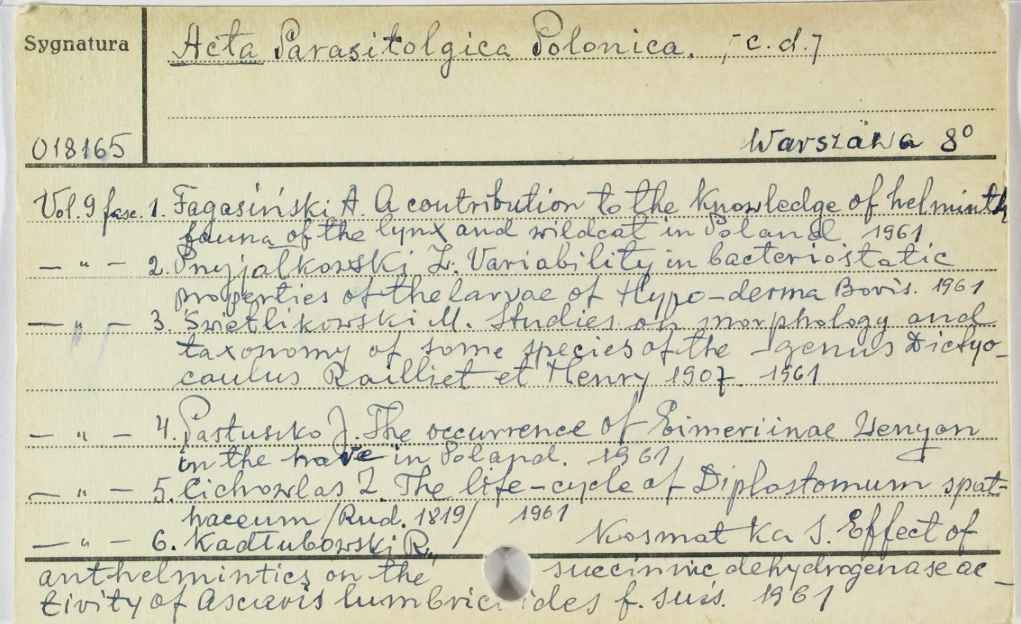 Sygnatura
Acta Parasitolgica Polonica. /-c.d.7
018165
Warszawa 8°
Vol. 9 fasc. 1. Fagasiński A. A contribution to the knowledge of helminth
fauna of the lynx and wildcat in Poland 1961
— " — 2. Przyjałkowski Z. Variability in bacteriostatic
properties of the larvae of Hypo-derma Bovis. 1961
— " — 3. Świetlikowski M. Studies on morphology and
taxonomy of some species of the genus Dictyo-
caulus Railliet et Henry 1907. 1961
— " — 4. Pastuszko J. The occurrence of Eimeriinae Wenyon
in the hare in Poland. 1961
— " — 5. Cichowlas Z. The life-cycle of Diplostomum spat-
haceum /Rud. 1819/ 1961
— " — 6. Kadłubowski R., Kosmatka S. Effect of
anthelmintics on the succinnic dehydrogenase ac-
tivity of Ascaris lumbricoides f. suis. 1961